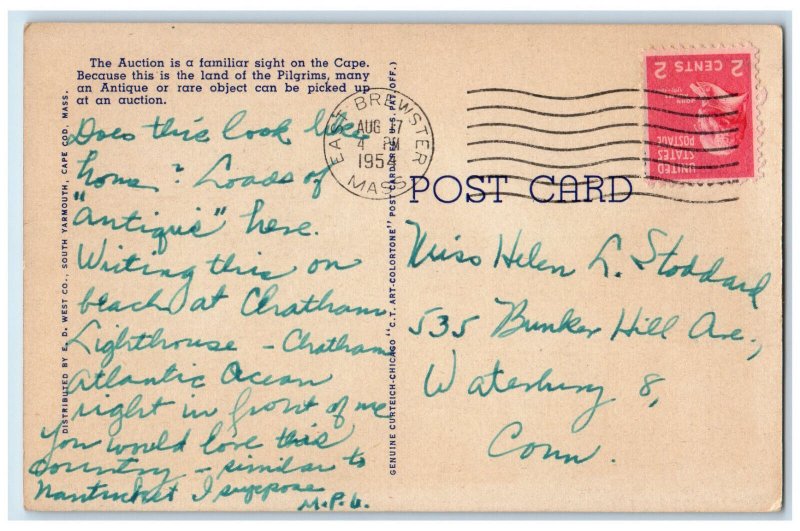 The Auction is a familiar sight on the Cape.
Because this is the land of the Pilgrims, many
an Antique or rare object can be picked up
at an auction.
Does this look like
home? Loads of
"antique" here.
Writing this on
beach at Chatham
Lighthouse - Chatham
Atlantic Ocean
right in front of me
You would love this
country - similar to
Nantucket I suppose
M.P.G.
DISTRIBUTED BY E. D. WEST CO., SOUTH YARMOUTH, CAPE COD, MASS.
GENUINE CURTEICH-CHICAGO "C.T. ART-COLORTONE" POST CARD (REG. U.S. PAT. OFF.)
EAST BREWSTER
AUG 17
4 PM
1954
MASS.
UNITED
STATES
POSTAGE
2 CENTS 2
POST CARD
Miss Helen L. Stoddard
535 Bunker Hill Ave.,
Waterbury 8,
Conn.